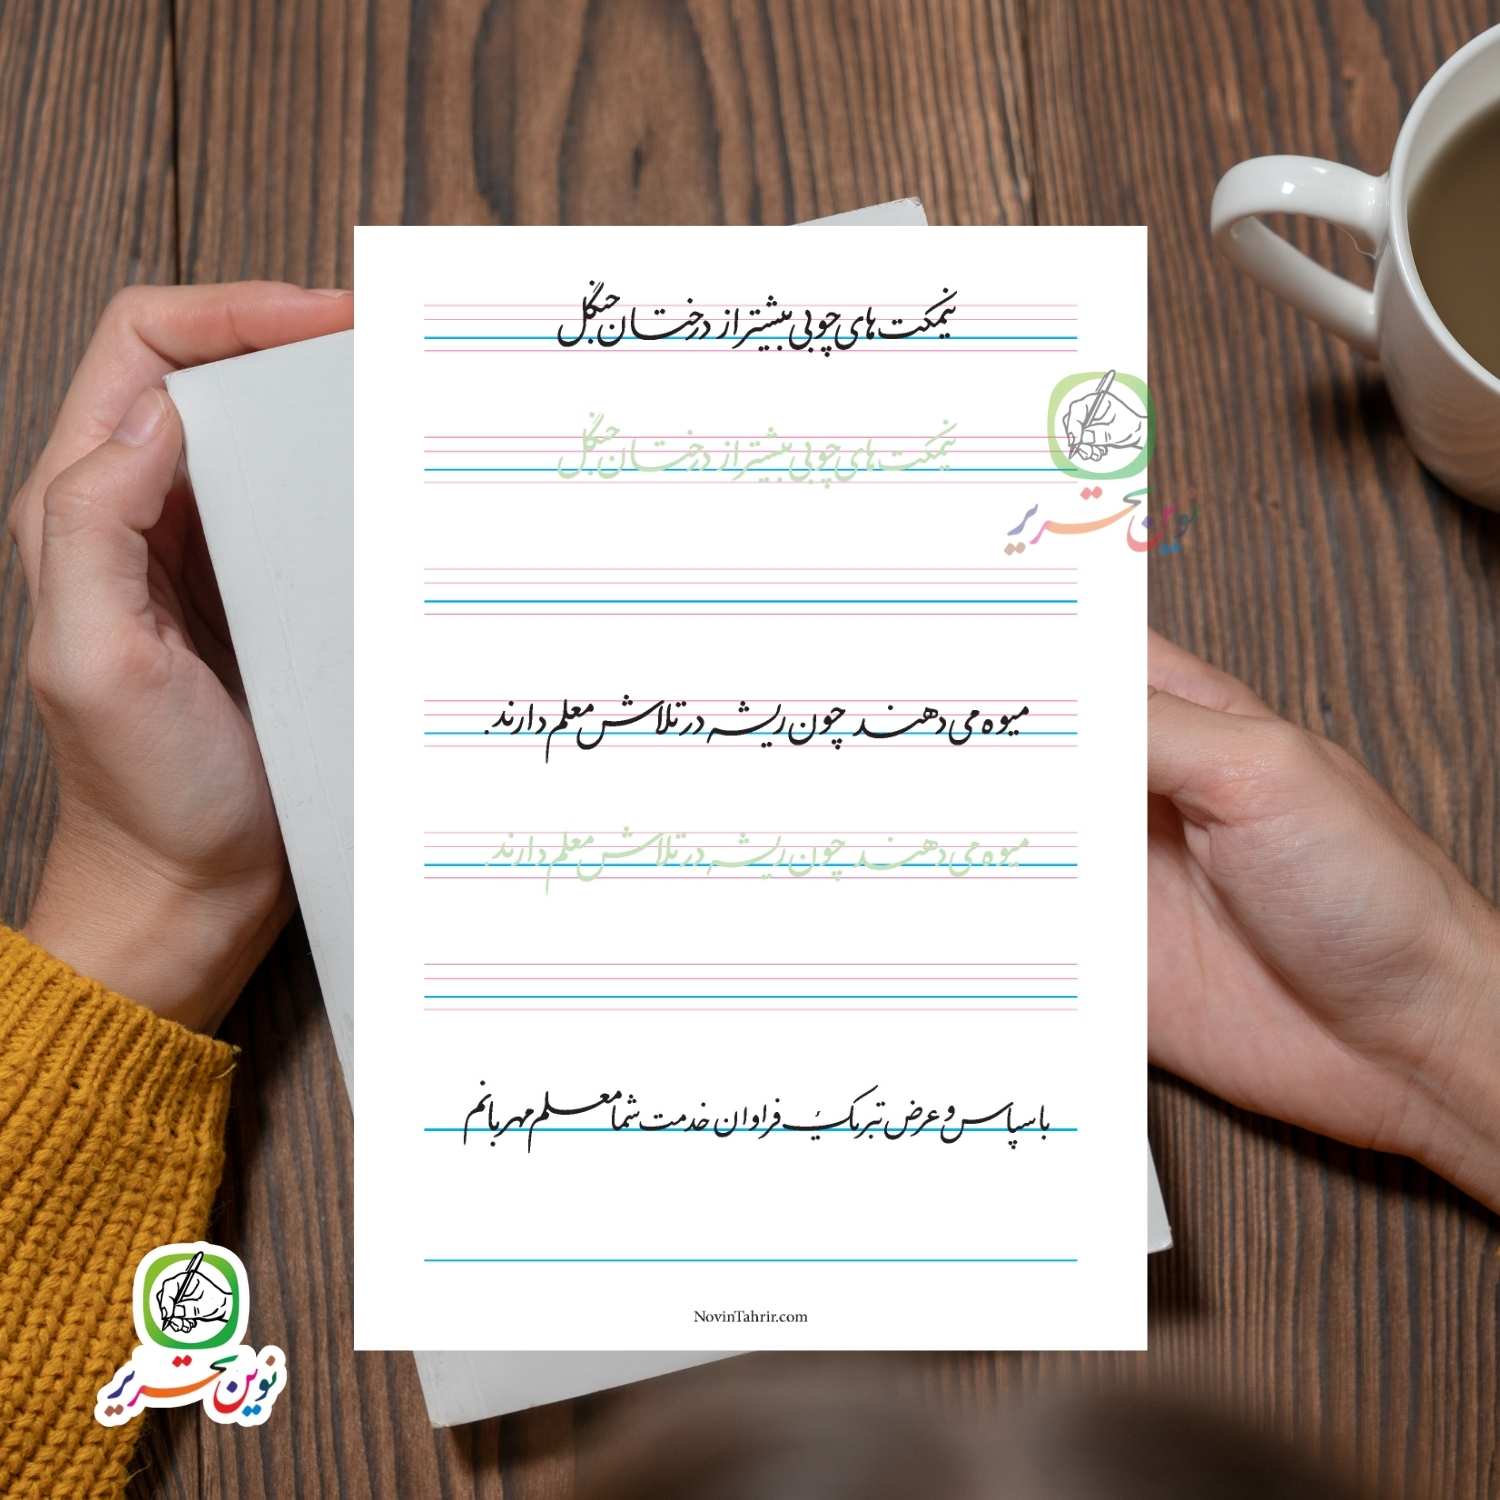 نیمکت های چوبی بیشتر از درختان جنگل
نیمکت های چوبی بیشتر از درختان جنگل
نوین تحریر
میوه می دهند چون ریشه در تلاش معلم دارند.
میوه می دهند چون ریشه در تلاش معلم دارند.
با سپاس و عرض تبریک فراوان خدمت شما معلم مهربانم
NovinTahrir.com
نوین تحریر